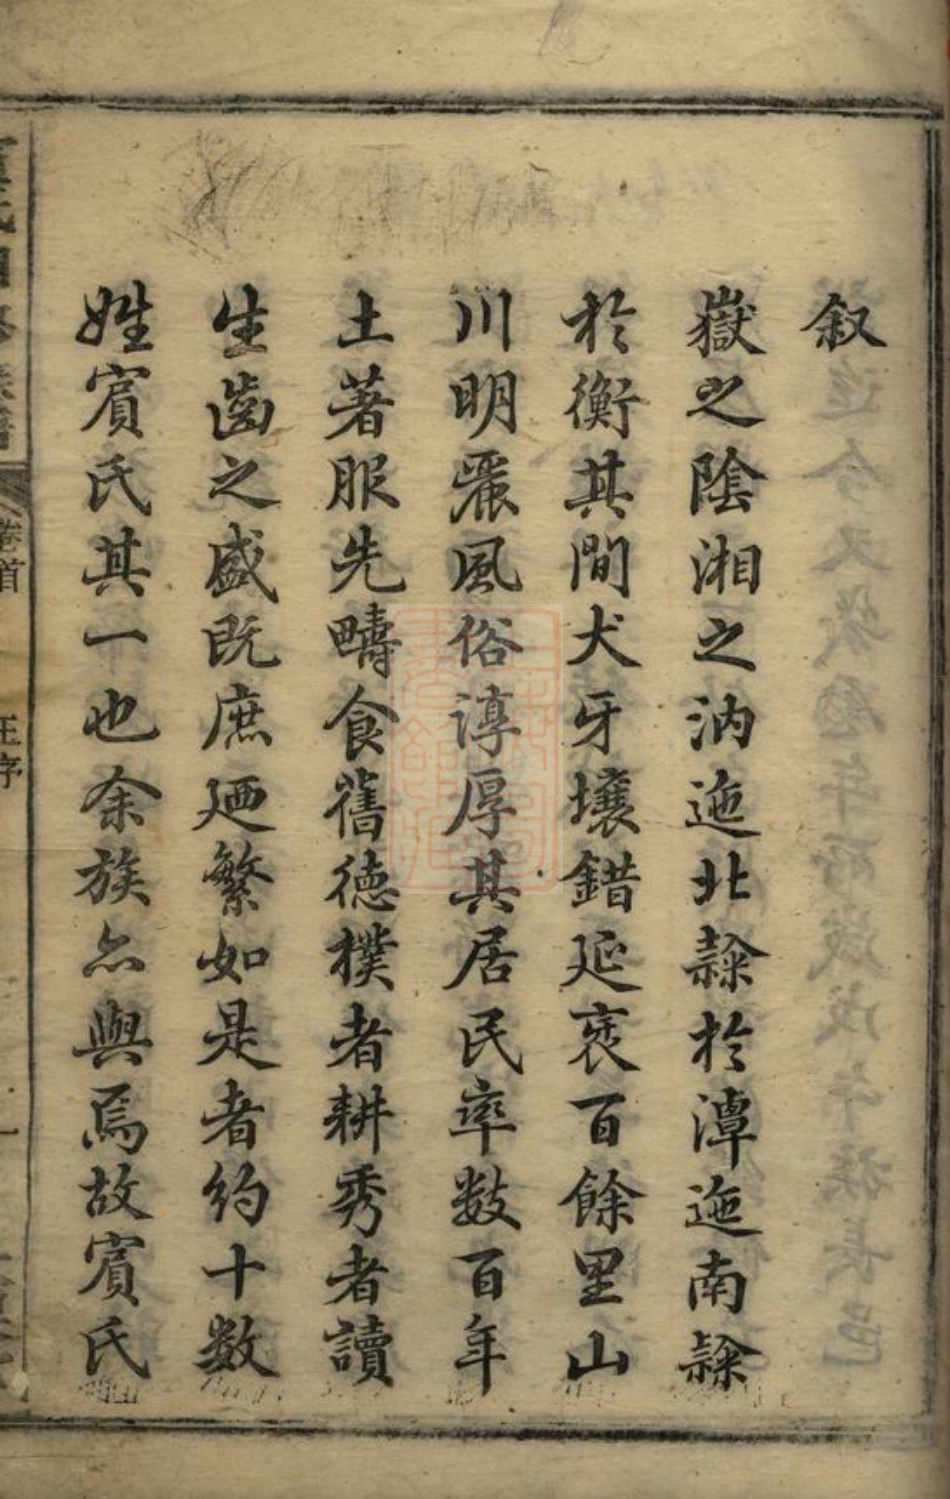 叙
嶽之陰湘之汭迆北隸於潭迆南隸
於衡其間犬牙壤錯延袤百餘里山
川明麗風俗淳厚其居民率数百年
土著服先疇食舊德樸者耕秀者讀
生齒之盛既庶廼繁如是者約十数
姓賔氏其一也余族亦與焉故賔氏
卷首
王序
一